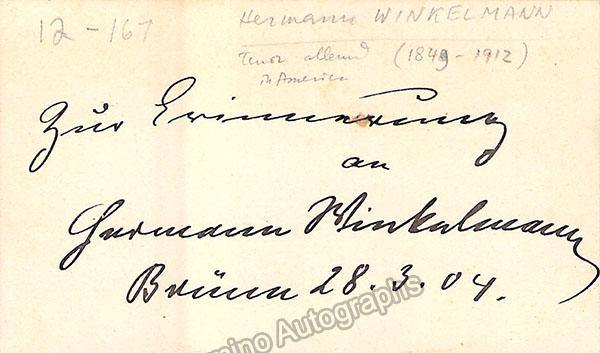 12-167
Hermann WINKELMANN
Tenor allemd (1849-1912)
in America
Zur Erinnerung
an
Hermann Winkelmann
Brünn 28.3.04.
mino Autographs